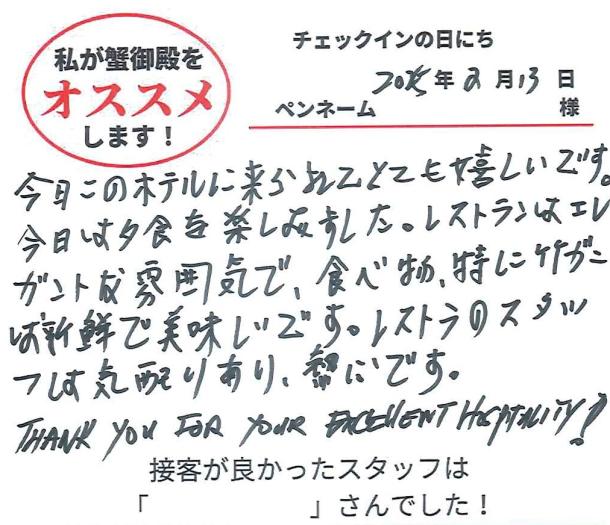 私が蟹御殿を
オススメ
します！
チェックインの日にち
2025年2月13日
ペンネーム 様
今日このホテルに来られてとても嬉しいです。
今日は夕食を楽しみました。レストランはエレ
ガントな雰囲気で、食べ物、特に竹ガニ
は新鮮で美味しいです。レストラのスタッ
フは気配りあり、です。
THANK YOU FOR YOUR EXCELLENT HOSPITALITY!
接客が良かったスタッフは
「 」さんでした！